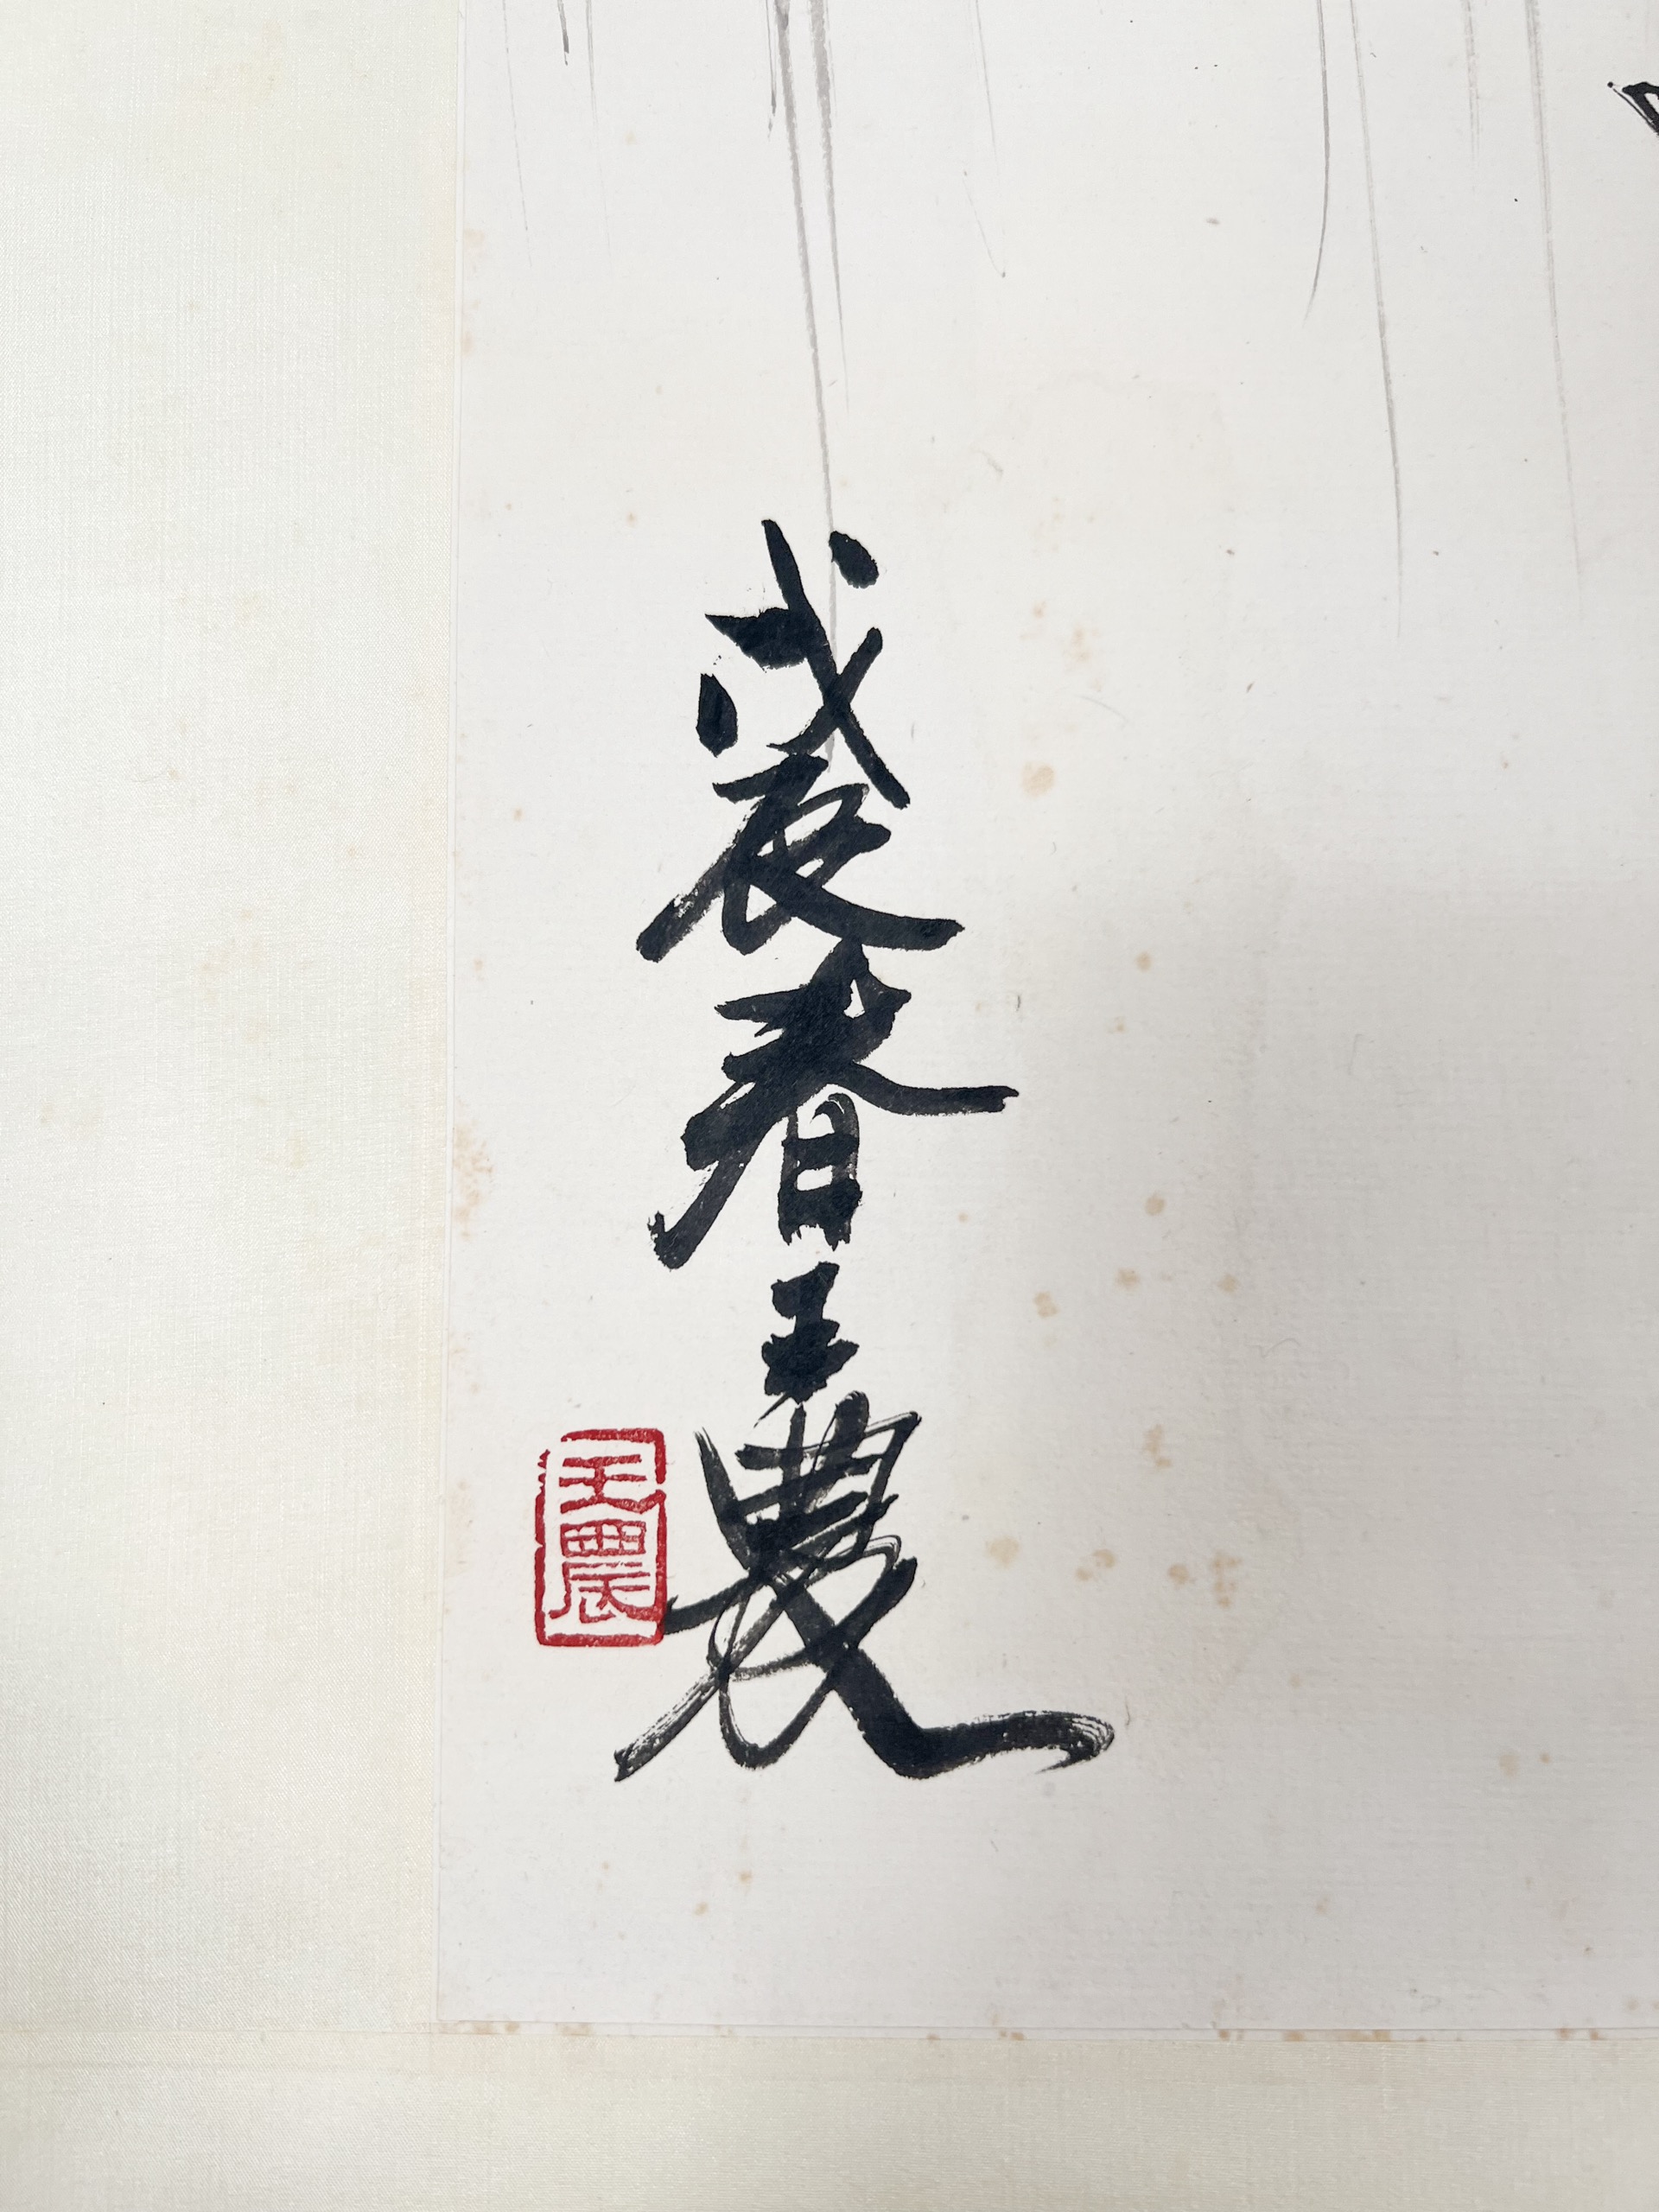 戊辰春王農
王農